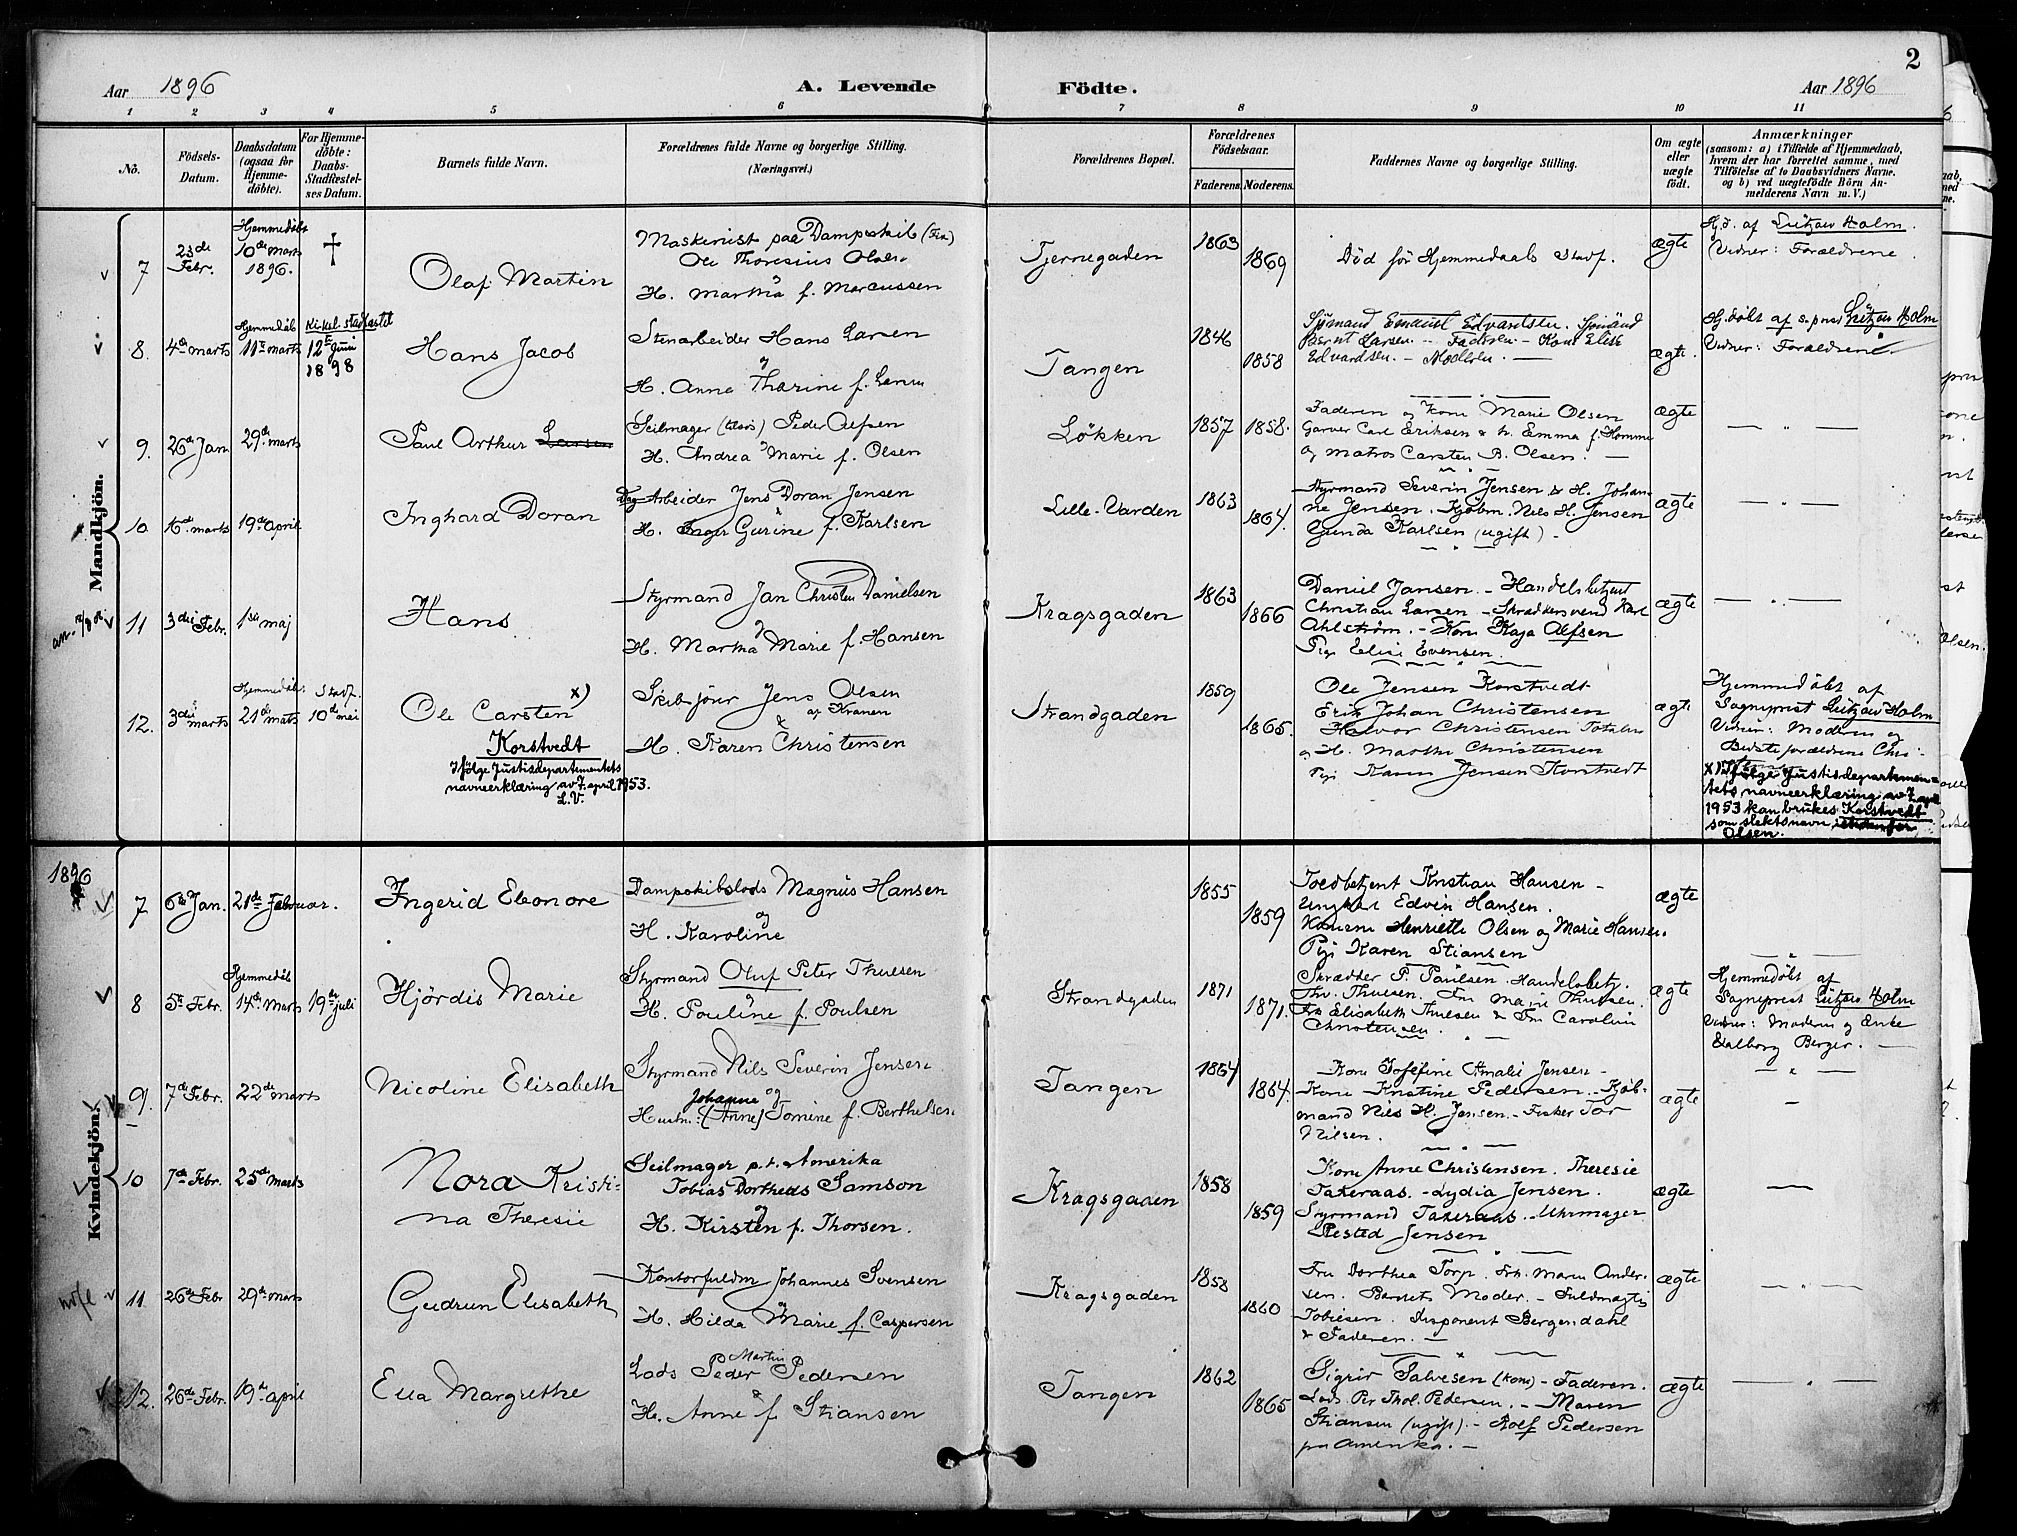 2
Aar 1896
A. Levende
Födte.
Aar 1896
1 2 3 4 5 6 7 8 9 10 11
No.
Födsels-
Datum.
Daabsdatum
(ogsaa for
Hjemme-
döbte).
For Hjemme-
döbte:
Daabs-
Stadfæstel-
ses Datum.
Barnets fulde Navn.
Forældrenes fulde Navne og borgerlige Stilling.
(Næringsvei.)
Forældrenes Bopæl.
Forældrenes
Födselsaar.
Faderens. Moderens.
Faddernes Navne og borgerlige Stilling.
Om ægte
eller
uægte
født.
Anmærkninger
(saasom: a) i Tilfælde af Hjemmedaab,
hvem der har forrettet samme, med
Tilföielse af to Daabsvidners Navne.
og b) ved uægtefödte Börn An-
melderens Navn m. V.)
Mandkjön.
7
23de
Febr.
Hjemmedøbt
10de Marts
1896.
†
Olaf Martin
Maskinist paa Dampskib
Ole Thoresius Olsen
H. Martha f. Marcussen
Tjernegaden
1863
1869
Død før Hjemmedaabs Stadf.
ægte
Hj.d. af Lützow Holm.
Vidner: Forældrene
8.
4de marts
Hjemmedøb
11te marts
Kirkel. stadfæstet
12te Juni
1898
Hans Jacob
Stenarbeider Hans Larsen
H. Anna Thorine f. Larsen
Tangen
1846
1858
Sjømand Edvardsen. Sjømand
Bernt Larsen - Faderen - Kone Elise
Edvardsen. - Moderen. -
ægte.
Hj.døbt af s.pres Lützow Holm
Vidner: Forældrene.
9.
26de Jan
29de marts
Paul Arthur Larsen
Seilmager Peder Alfsen
H. Andrea Marie f. Olsen
Løkken
1857
1858.
Faderen og Kone Marie Olsen
Garver Carl Eriksen & h. Emma f. Homme
og matros Carsten B. Olsen.
ægte
10
marts
19de april
Inghard Doran
Arbeider Jens Doran Jensen
H. Inger Gurine f. Karlsen
Lille-Varden
1863
1864.
Styrmand Severin Jensen & H. Johan-
ne Jensen. Kjøbm. Nils H. Jensen
Gunda Karlsen (ugift) -
ægte
11
3die Febr.
1ste maj
Hans
Styrmand Jan Christen Danielsen
H. Martha Marie f. Hansen
Kragsgaden
1863
1866
Daniel Jansen. - Handelsbetjent
Christian Larsen - Skræddersvend Karl
Ahlstrøm. - Kone Kaja Alfsen
Pige Elise Evensen.
ægte
12.
3die marts
Hjemmedøb:
21de mats
Stadf.
10de mai
Ole Carsten x)
Korstvedt
Ifölge Justisdepartementets
navneerklæring av 7. april 1953.
L.V.
Jens Olsen
H. Karen Christensen
Strandgaden
1859
1865.
Ole Jensen Korstvedt
Erik Johan Christensen
Halvor Christensen
og H. Marthe Christensen
Pige Karen Jensen Korstvedt
ægte
Hjemmedøbt af
Sogneprest Lützow Holm
Vidner: Moderen og
Bedsteforældrene Chri-
x) Ifölge Justisdepartemen-
tets navneerklæring av 7. april
1953 kan brukes Korstvedt
som slektsnavn
Olsen.
1896
Kvindekjön.
7
6te Jan.
21de Februar.
Ingerid Eleonore
Dampskibslods Magnus Hansen
og
H. Karoline
1855
1859
Toldbetjent Kristian Hansen -
Ungkarl Edvin Hansen.
Konerne Henriette Olsen og Marie Hansen.
Pige Karen Stiansen
ægte
8
5te Febr.
Hjemmedøb
14de Marts
19de juli
Hjördis Marie
Styrmand Oluf Peter Thuesen
H. Pouline f. Poulsen
Strandgaden
1871
1871.
Skrædder P. Paulsen. Handelsbetj.
Th. Thuesen. Fru Marie Thuesen.
Fru Elisabeth Thuesen & Fru Caroline
Christensen.
ægte
Hjemmedøbt af
Sogneprest Lützow Holm
Vidner: Moderen og Enke
Valborg Berger. -
9.
7de Febr.
22de marts
Nicoline Elisabeth
Styrmand Nils Severin Jensen
Johanne og
Hustru: (Anne) Tomine f. Berthelsen
Tangen
1864
1864.
Kone Josefine Amalie Jensen -
Kone Kristine Pedersen. - Kjøb-
mand Nils H. Jensen. - Fisker Tor
Nilsen.
ægte
10
7de Febr.
25de Marts
Nora Kristi-
na Theresie
Seilmager p.t. Amerika
Tobias Dortheus Samson
og
H. Kirsten f. Thorsen.
Kragsgaden
1858
1859
Kone Anne Christensen. Theresie
Takeraas. - Lydia Jensen.
Styrmand Takeraas - Uhrmager
Rested Jensen
ægte
11.
26de Febr
29de marts
Gudrun Elisabeth
Kontorfuldm Johannes Svensen
H. Hilda Marie f. Caspersen
Kragsgaden
1858
1860
Fru Dorthea Torp. Frk. Maren Ander-
sen. Barnets Moder. - Fuldmægtig
Tobiesen. Disponent Bergendahl
& Faderen. -
ægte
12.
26de Febr.
19de april
Eva Margrethe
Lods Peder Martin Pedersen
&
H. Anne f. Stiansen
Tangen
1862
1865
Sigrir Salvesen (Kone) - Faderen.
Lods Per Thol. Pedersen. - Maren
Stiansen (ugift). - Rolf Pedersen
paa Amerika. -
ægte